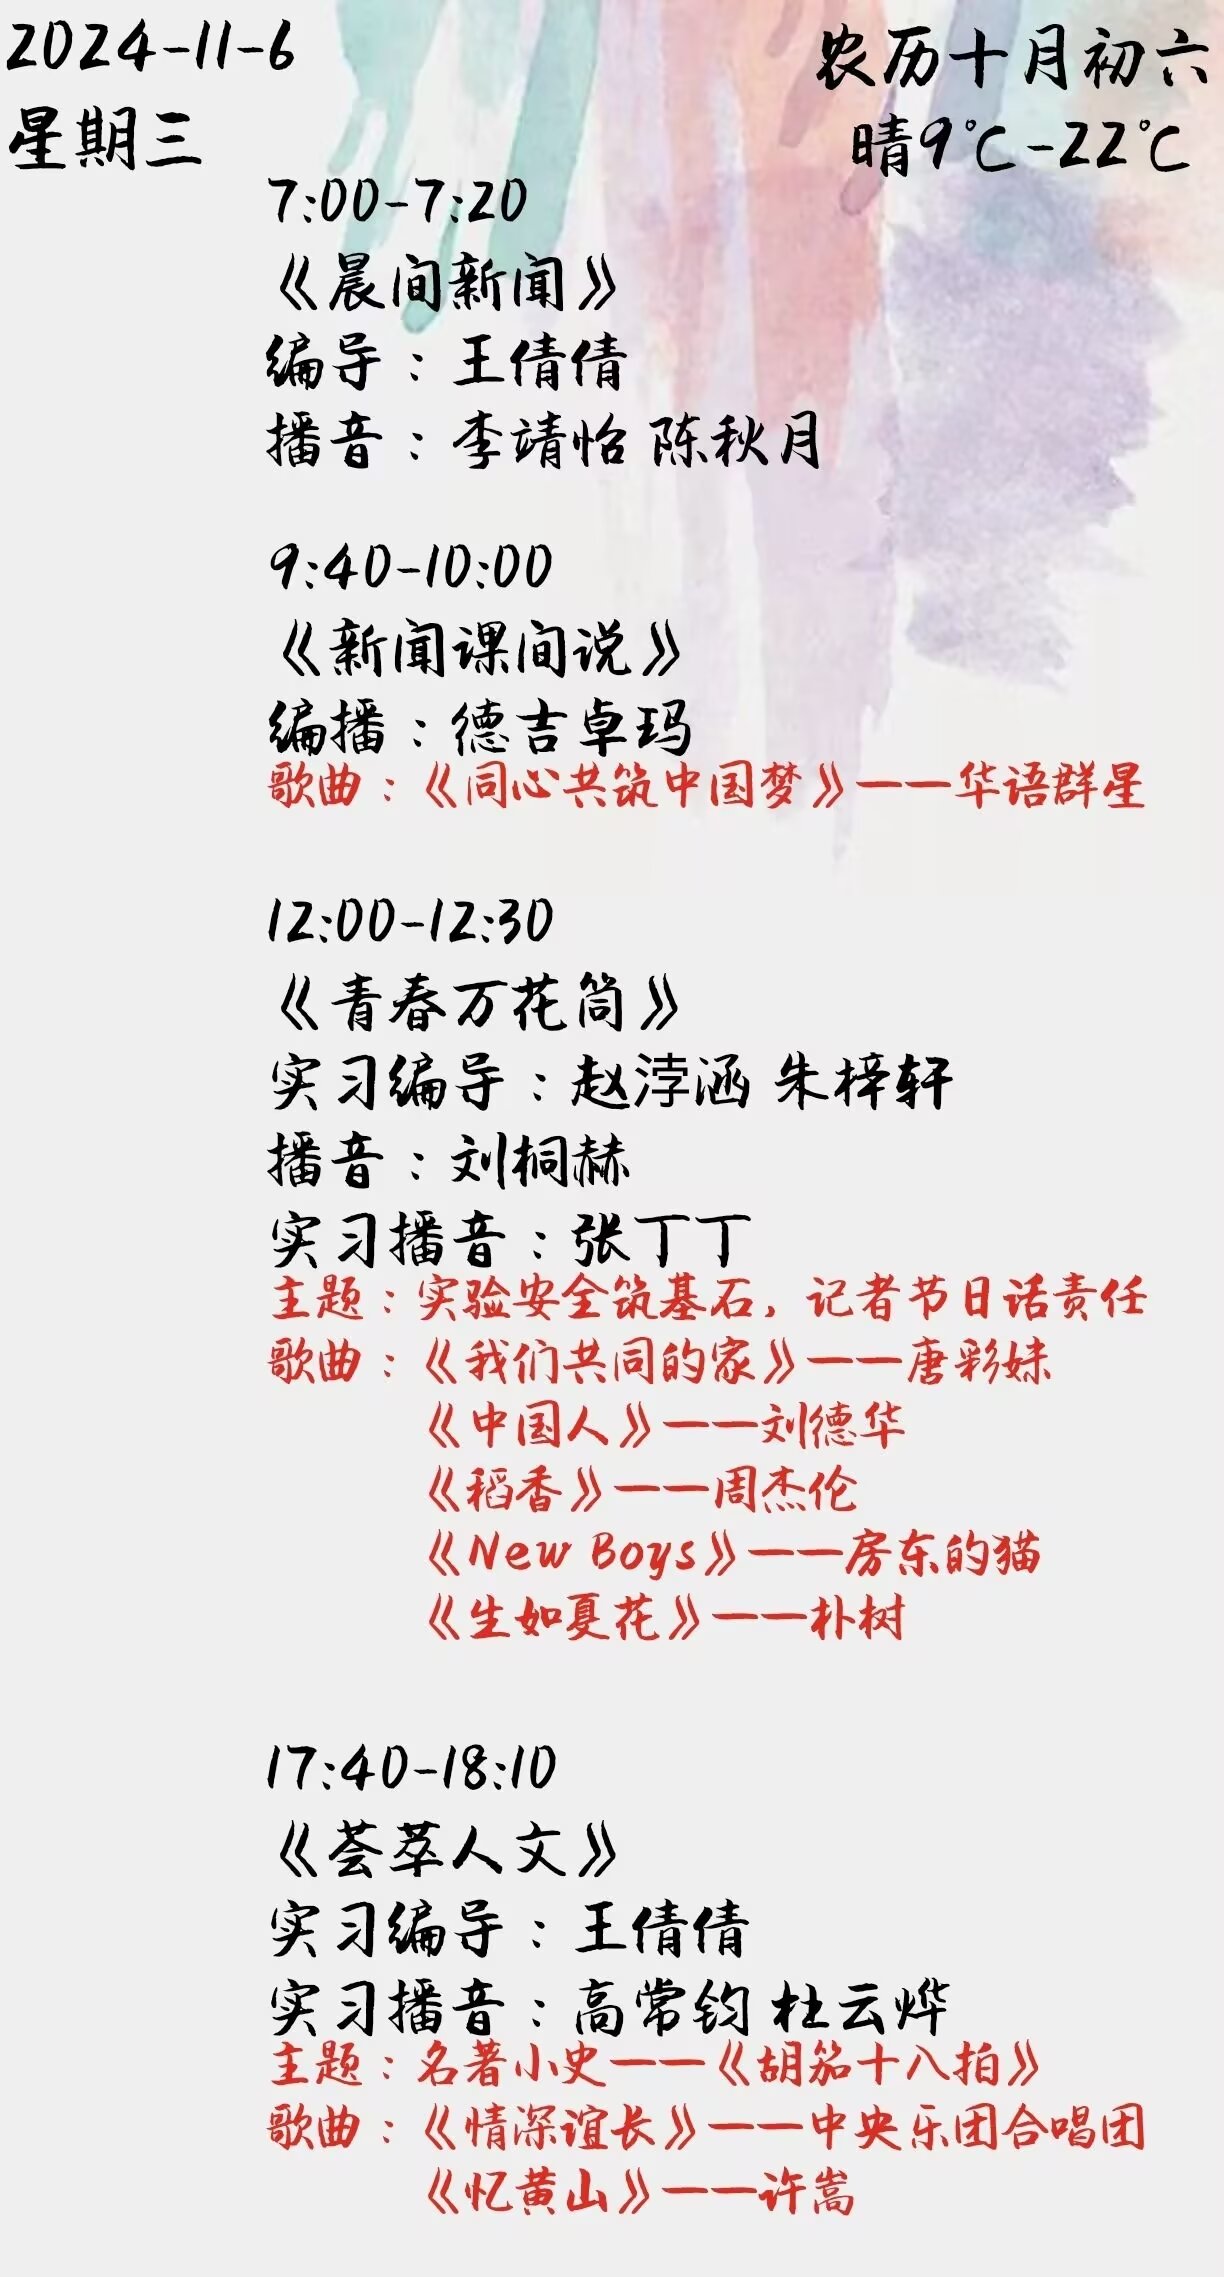 2024-11-6
农历十月初六
星期三
晴9℃-22℃
7:00-7:20
《晨间新闻》
编导：王倩倩
播音：李靖怡 陈秋月
9:40-10:00
《新闻课间说》
编播：德吉卓玛
歌曲：《同心共筑中国梦》——华语群星
12:00-12:30
《青春万花筒》
实习编导：赵浡涵 朱梓轩
播音：刘桐赫
实习播音：张丁丁
主题：实验安全筑基石，记者节日话责任
歌曲：《我们共同的家》——唐彩妹
《中国人》——刘德华
《稻香》——周杰伦
《New Boys》——房东的猫
《生如夏花》——朴树
17:40-18:10
《荟萃人文》
实习编导：王倩倩
实习播音：高常钧 杜云烨
主题：名著小史——《胡笳十八拍》
歌曲：《情深谊长》——中央乐团合唱团
《忆黄山》——许嵩